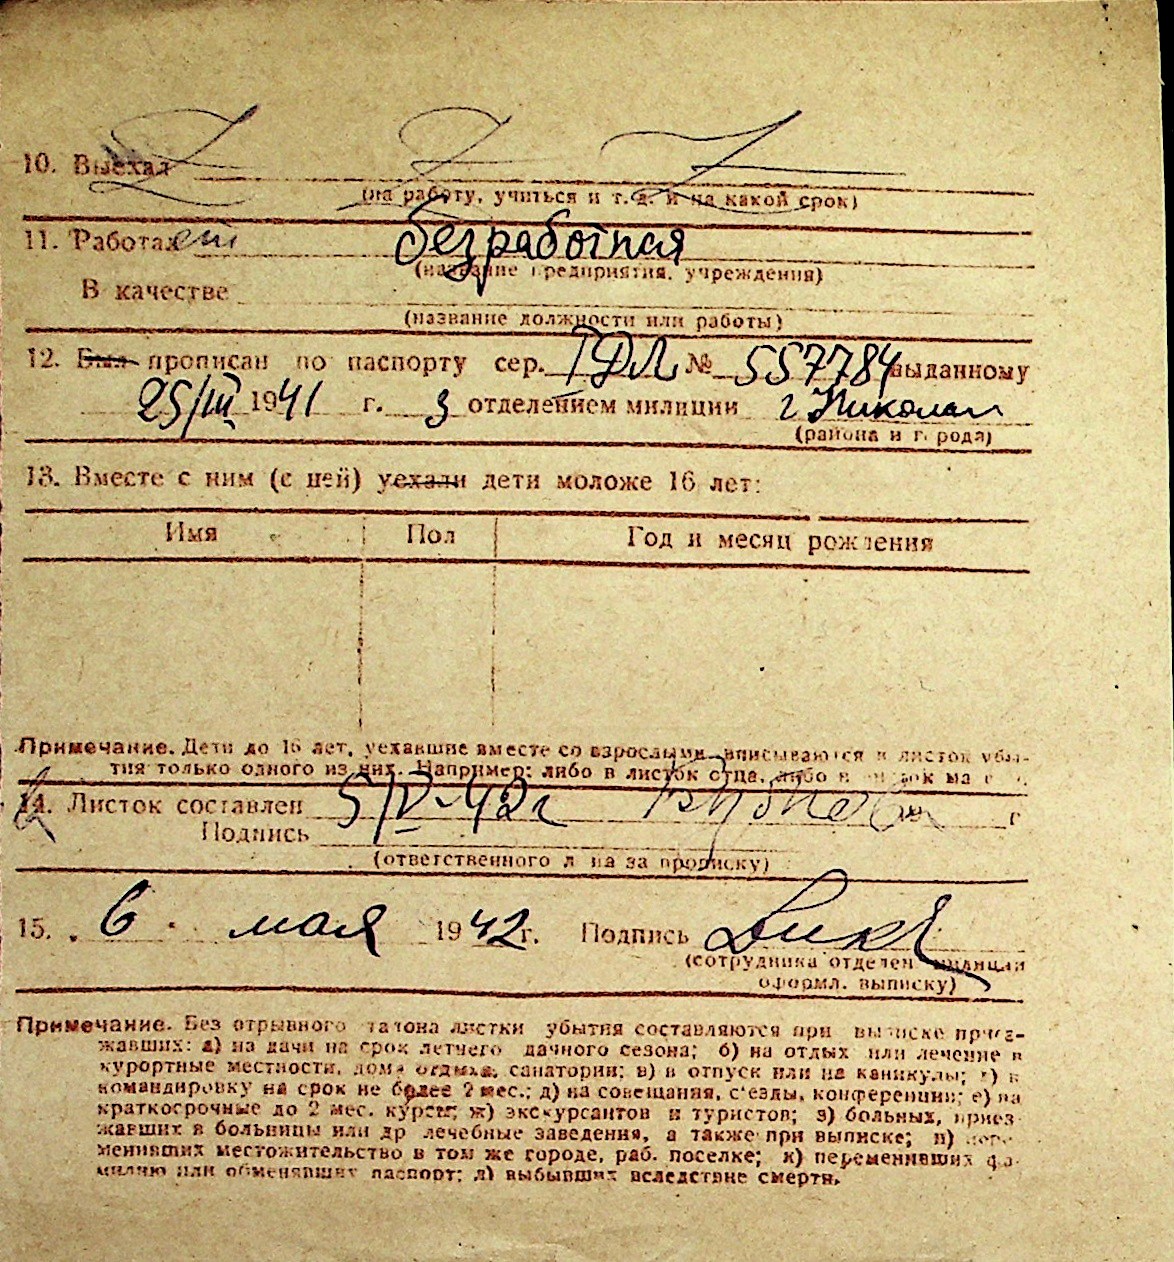 10. Выехал
(на работу, учиться и т. д. и на какой срок)
11. Работает безработная
(название предприятия, учреждения)
В качестве
(название должности или работы)
12. Был прописан по паспорту сер. ТДЛ № 557784 выданному
25/III 1941 г. 3 отделением милиции г. Николаев
(района и города)
13. Вместе с ним (с ней) уехали дети моложе 16 лет:
Имя Пол Год и месяц рождения
Примечание. Дети до 16 лет, уехавшие вместе со взрослыми вписываются в листок убы-
тия только одного из них. Например: либо в листок отца, либо в листок ма
14. Листок составлен 5/V-42 г г
Подпись
(ответственного лица за прописку)
15. 6 мая 1942 г. Подпись
(сотрудника отделен милиции
оформл. выписку)
Примечание. Без отрывного талона листки убытия составляются при выписке приез-
жавших: а) на дачи на срок летнего дачного сезона; б) на отдых или лечение в
курортные местности, дома отдыха, санатории; в) в отпуск или на каникулы; г) в
командировку на срок не более 2 мес.; д) на совещания, с'езды, конференции; е) на
краткосрочные до 2 мес. курсы; ж) экскурсантов и туристов; з) больных, приез-
жавших в больницы или др лечебные заведения, а также при выписке; и) пере-
менивших местожительство в том же городе, раб. поселке; к) переменивших фа-
милию или обменявших паспорт; л) выбывших вследствие смерти.